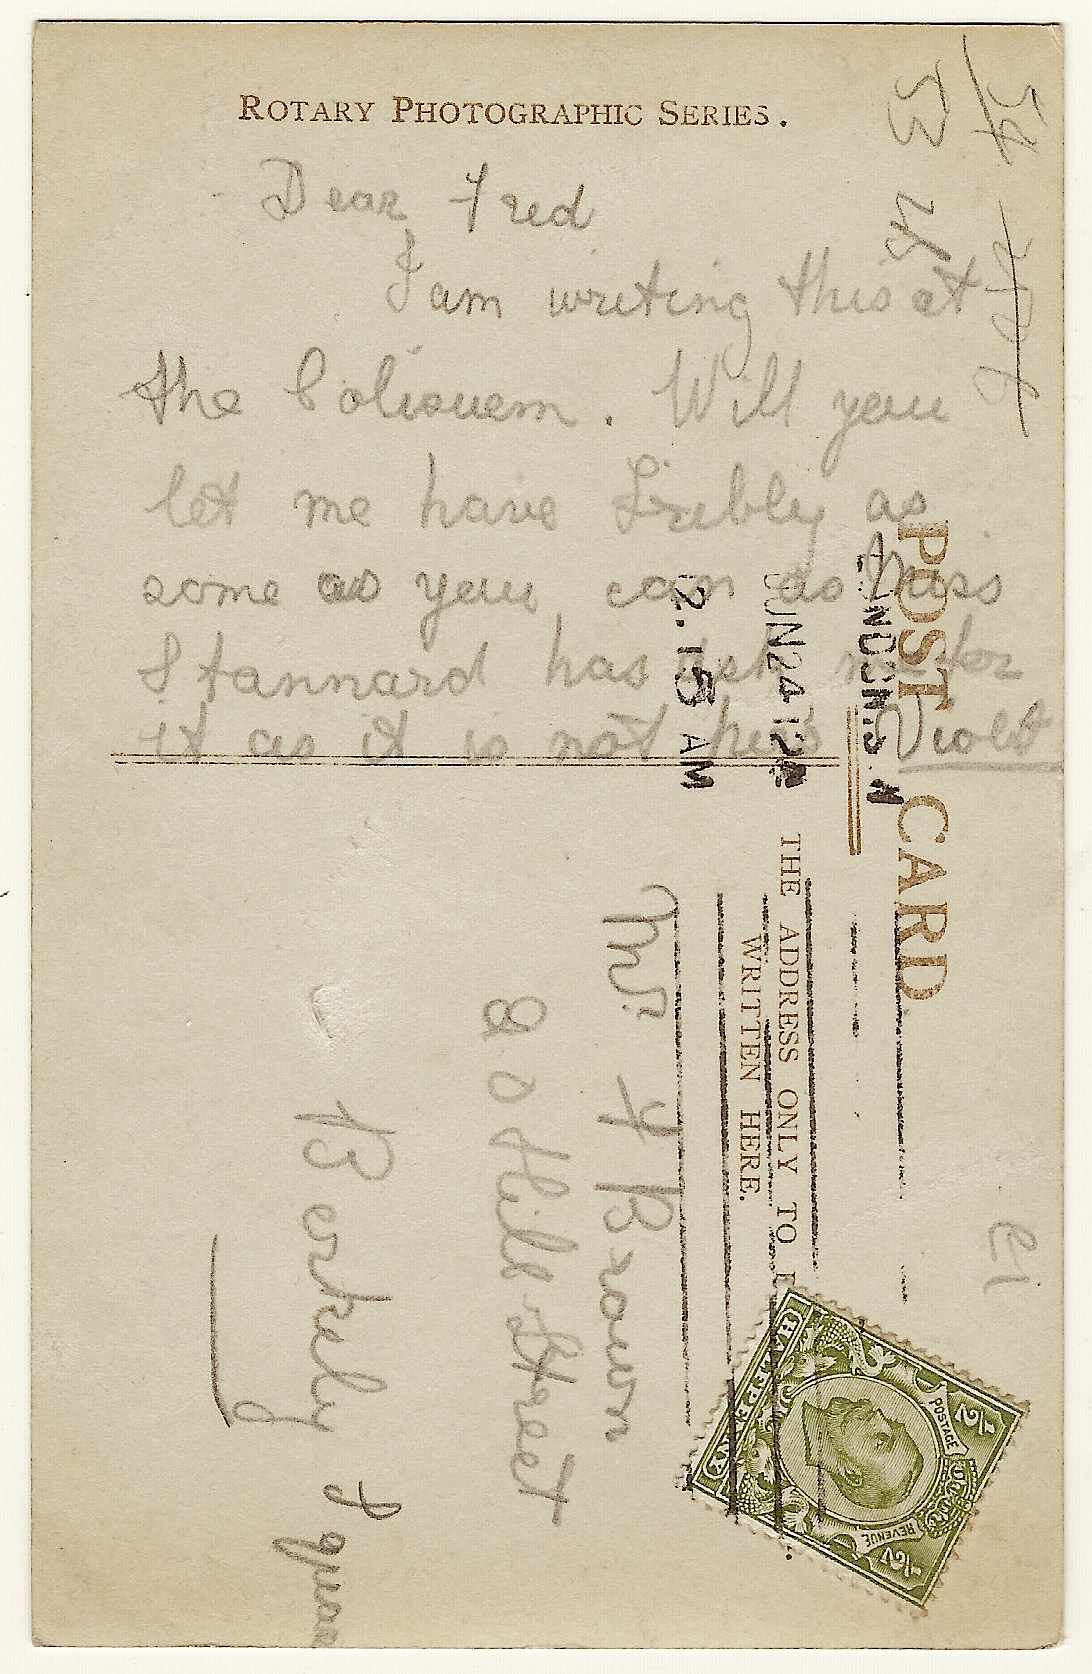 ROTARY PHOTOGRAPHIC SERIES.
Dear Fred
I am writing this at
the Colisuem. Will you
let me have as
some as you can as Miss
Stannard has ask me for
it as it is not hers Violet
POST CARD
THE ADDRESS ONLY TO
WRITTEN HERE.
LONDON.S.W
2.15 AM
JUN 24 12
Mr. F Brown
20 Hill Street
Berkely Squar
HALFPENNY
POSTAGE
REVENUE
1/2
1/2